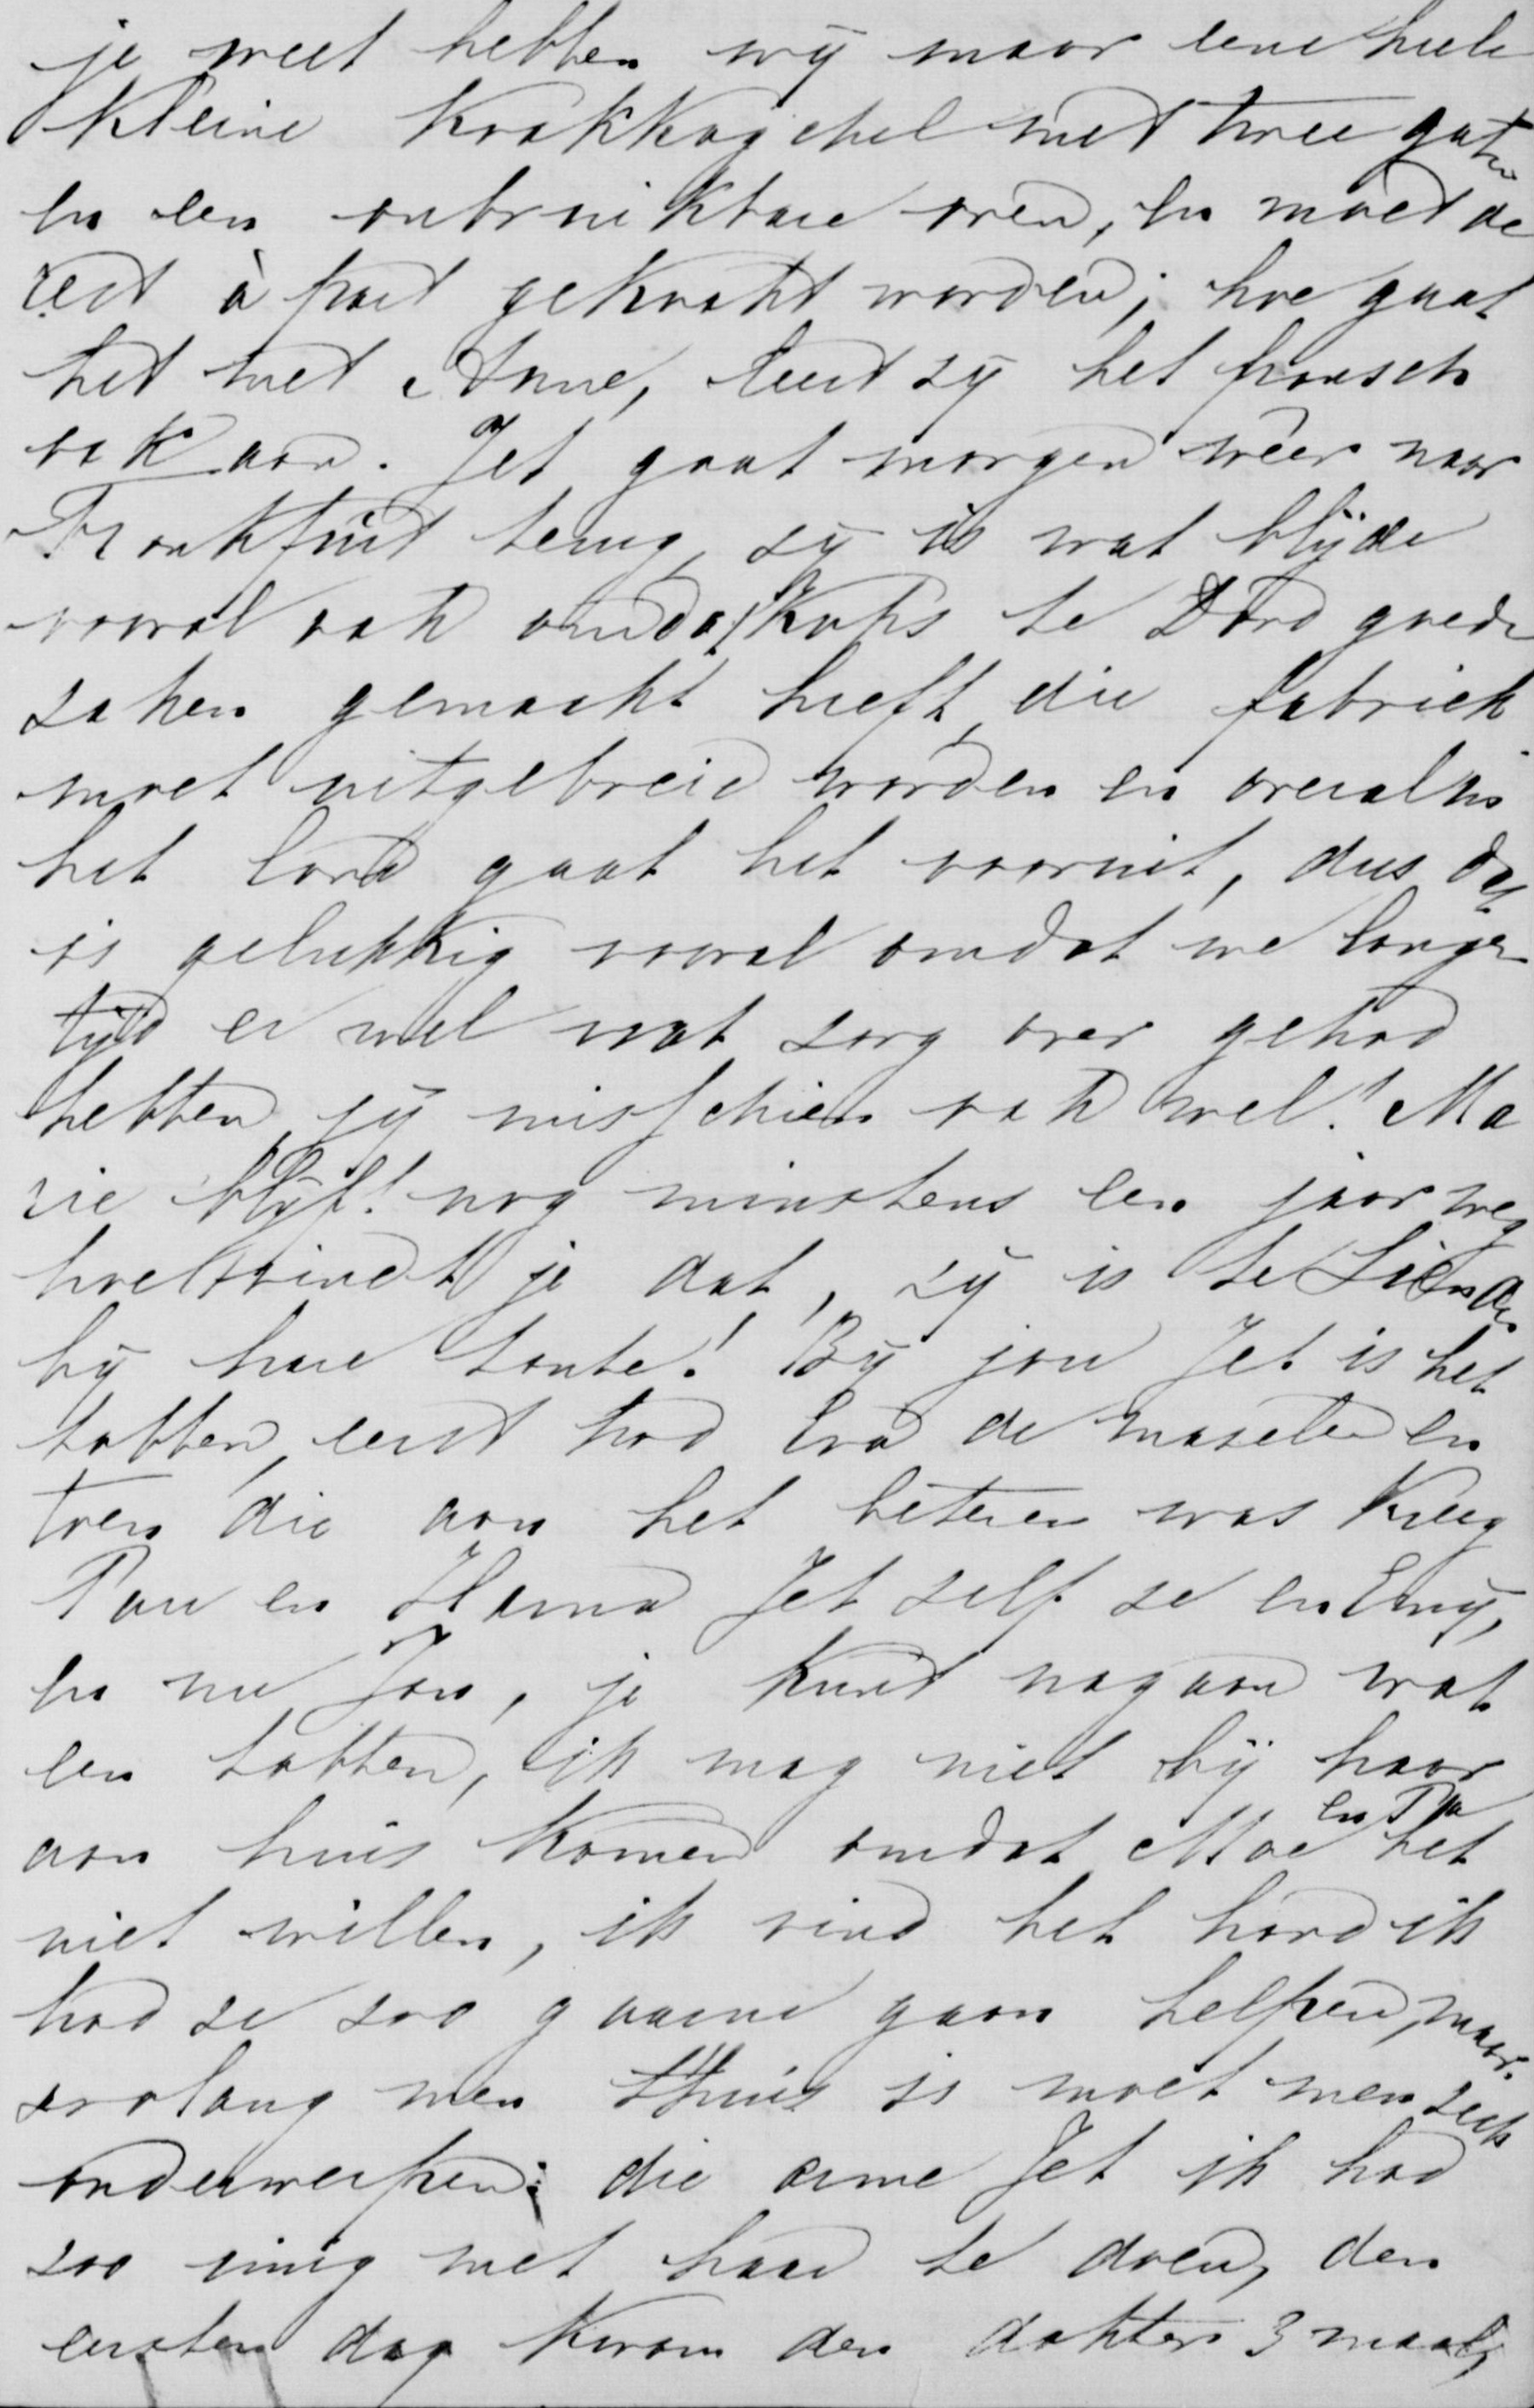 je weet hebben wij maar eene heele
kleine kookkagchel met twee gaten
en een onbruikbare oven, en moet de
rest à part gekookt worden; hoe gaat
het met Anne, leert zij het fransch
ook aan. Jet gaat morgen wêer naar
Frankfurt terug, zij is wat blijde
vooral ook omdat Kohs te Dord goede
zaken gemaakt heeft, die fabriek
moet uitgebreid worden en overal in
het land gaat het vooruit, dus dat
is gelukkig vooral omdat we langen
tijd er wel wat zorg over gehad
hebben, jij misschien ook wel! Ma
rie blijft nog minstens een jaar weg
hoe vindt je dat, zij is te Lienden
bij hare tante! Bij jou Jet is het
tobben, eerst had Eva de mazelen en
toen die aan het beteren was kreeg
Pau en Hanna Jet zelf ze en Emij,
en nu Jan, je kunt nagaan wat
een tobben, ik mag niet bij haar
aan huis komen omdat Moe en Pa het
niet willen, ik vind het hard ik
had ze zoo gaarne gaan helpen, maar
zoolang men thuis is moet men zich
onderwerpen; die arme Jet ik had
zoo innig met haar te doen, den
eersten dag kwam den dokter 3 maal,